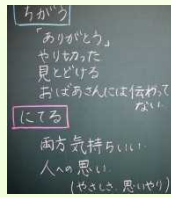 ちがう
「ありがとう」
やり切った
見とどける
おばあさんには伝わって
ない
にてる
両方気持ちいい
人への思い
(やさしさ、思いやり)